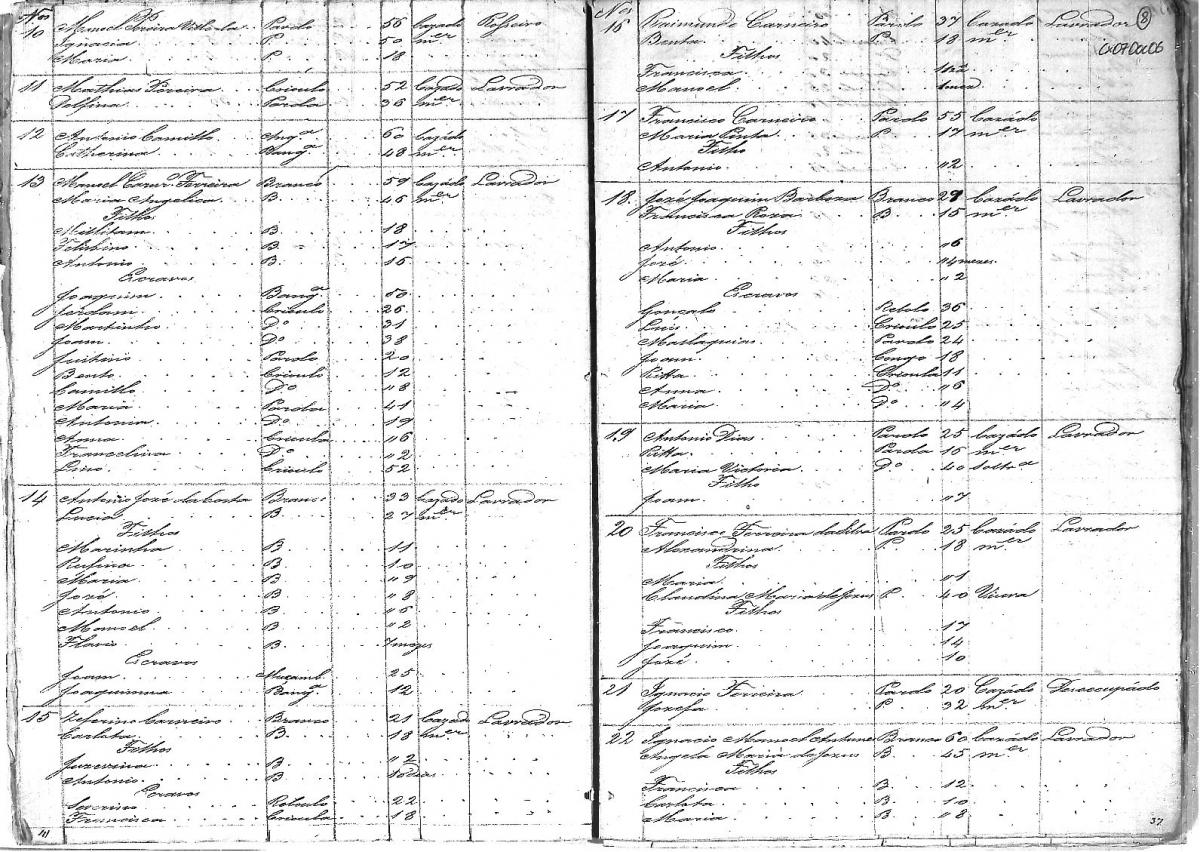 Nos
10 Manoel Pereira Pardo 56 Cazado
Ignacia P. 50 m.er
Maria P. 18
11 Mathias Pereira Crioulo 52 Cazado Lavrador
Delfina Parda 36 m.er
12 Antonio Camillo Ang.a 60 Cazado
Catherina Bang.a 48 m.er
13 Manoel Ferreira Branco 59 Cazado Lavrador
Maria Angelica B. 46 m.er
Filhos
Militam B 18
B 17
Antonio B. 15
Escravos
Joaquim Bang.a 50
Jordam Crioulo 26
Martinho D.o 31
Joam D.o 38
Pardo 20
Bento Crioulo 12
Camillo D.o "8
Maria Parda 41
Antonia D.o 19
Anna Crioula "6
Francelina D.o "2
Lino Crioulo 52
14 Antonio José da Costa Branco 33 Cazado Lavrador
Lucia B 27 m.er
Filhos
Marinha B 11
Rufina B 10
Maria B "9
José B "8
Antonio B "6
Manoel B "2
B 7 mezes
Escravos
Joam Muçamb. 25
Joaquinna Bang.a 12
15 Zeferino Carneiro Branco 21 Cazado Lavrador
Carlota B. 18 m.er
Filhos
B "2
Antonio B 10 dias
Escravos
Severino Rebolo 22
Francisca Crioula 18
Nos
16 Raimundo Carneiro Pardo 37 Cazado Lavrador 8
Benta P. 18 m.er
Filhos
Francisca
Manoel
17 Francisco Carneiro Pardo 55 Cazado
Maria Pinta P. 17 m.er
Filho
Antonio "2
18. Jozé Joaquim Barboza Branco 29 Cazado Lavrador
Francisca Roza B 15 m.er
Filhos
Antonio "6
Jozé "4 mezes
Maria "2
Escravos
Gonçalo Rebolo 36
Luis Crioulo 25
Malaquias Pardo 24
Joam Congo 18
Ritta Crioula 11
Anna D.o "6
Maria D.o "4
19 Antonio Dias Pardo 25 Cazado Lavrador
Ritta Parda 16 m.er
Maria Victoria D.o 40 Solt.a
Filho
Joam "7
20 Francisco Ferreira da Silva Pardo 25 Cazado Lavrador
Alexandrina P. 18 m.er
Filhos
Maria "1
Claudina Maria de Jezus P. 40 Viuva
Filhos
Francisco 17
Joaquim 14
Jozé 10
21 Ignacio Ferreira Pardo 20 Cazado Desoccupado
Jozefa P. 32 m.er
22 Ignacio Manoel Antunes Branco 60 Cazado Lavrador
Angela Maria de Jezus B. 45 m.er
Filhos
Francisca B. 12
Carlota B. 10
Maria B. "8
37